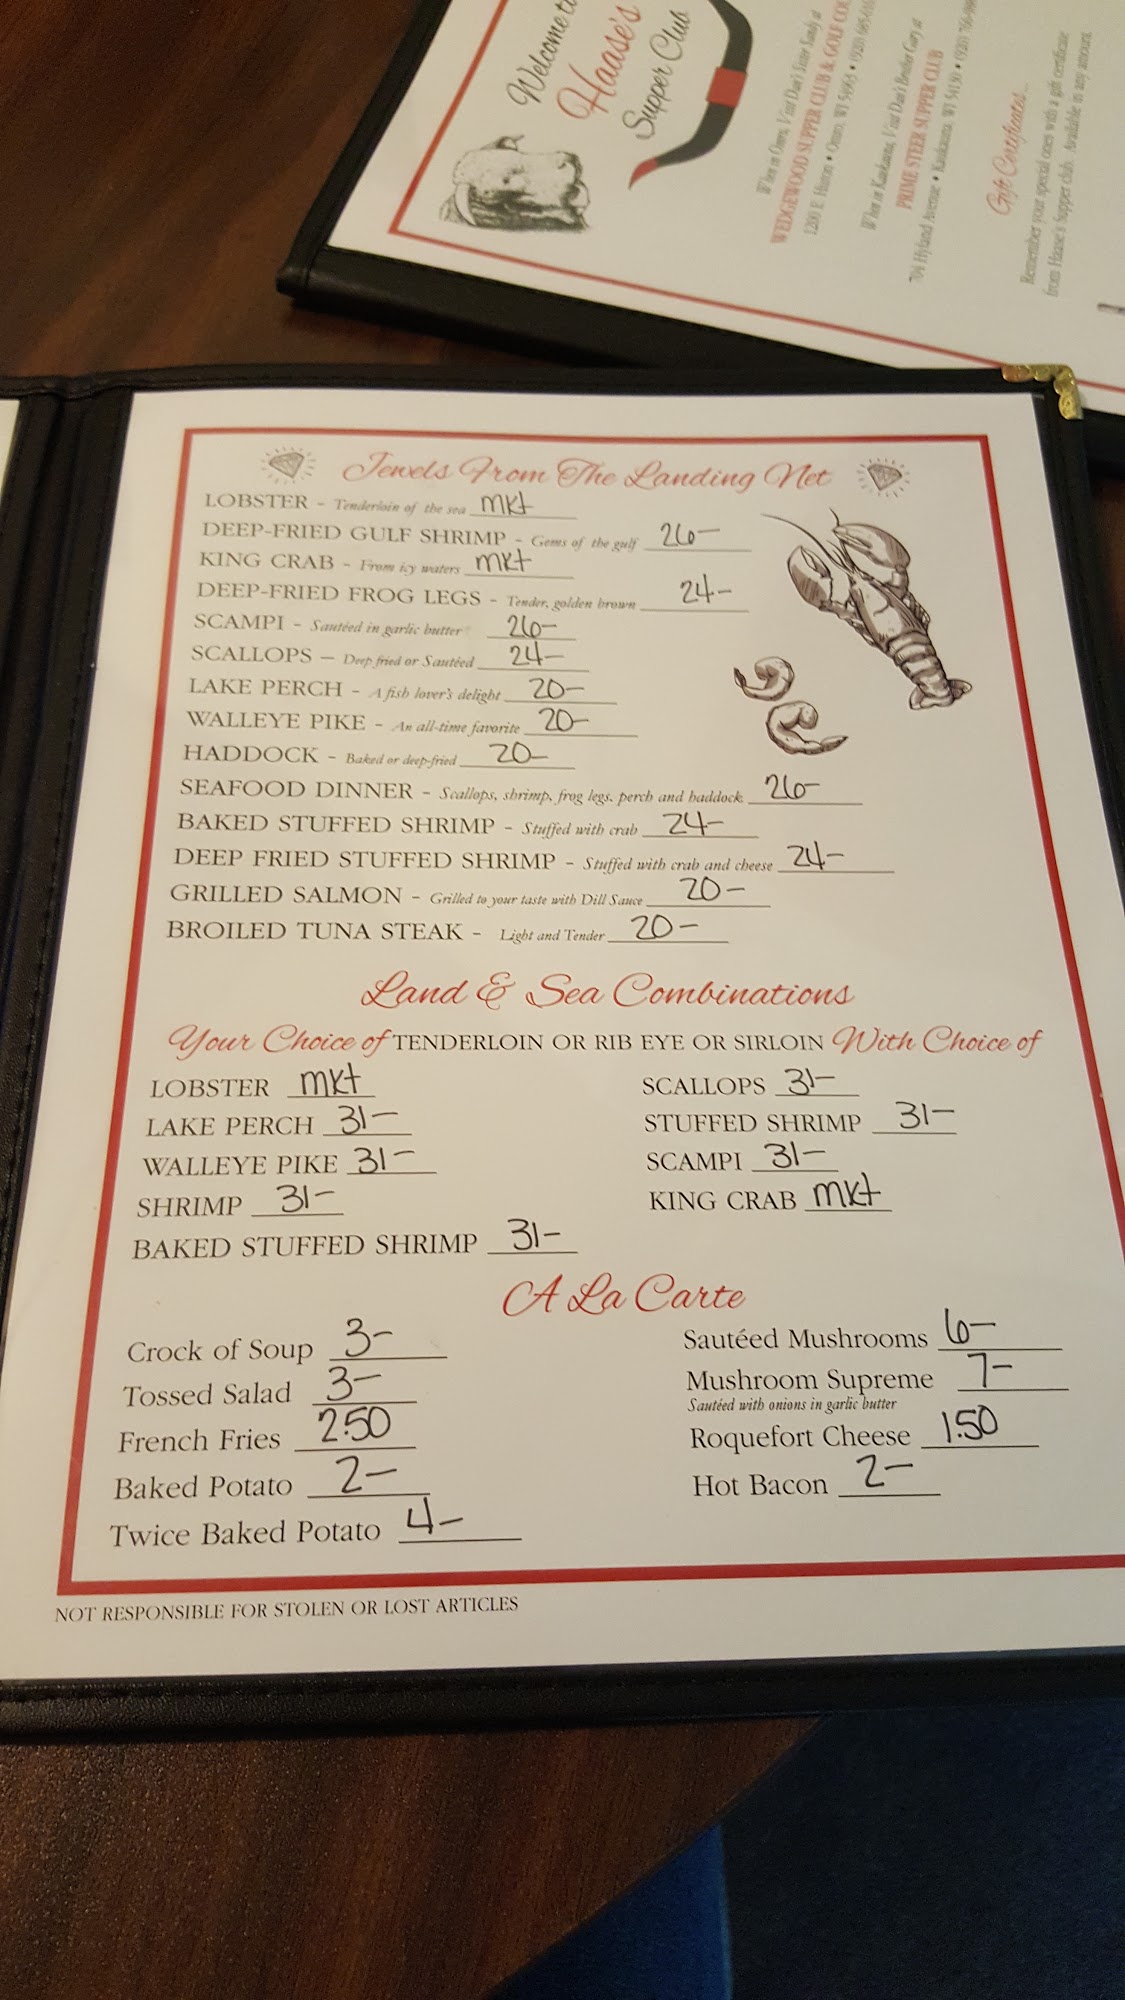 Welcome to
Haase's
Supper Club
When in Omro, Visit Dan's Sister Sandy at
WEDGEWOOD SUPPER CLUB & GOLF
1200 E. Huron • Omro, WI 54963 • (920)
When in Kaukauna, Visit Dan's Brother Gary at
PRIME STEER SUPPER CLUB
704 Hyland Avenue • Kaukauna, WI 54130 • (920)
Gift Certificates...
Remember your special ones with a gift certificate
from Haase's Supper club. Available in any amount.
Jewels From The Landing Net
LOBSTER - Tenderloin of the sea mkt
DEEP-FRIED GULF SHRIMP - Gems of the gulf 26-
KING CRAB - From icy waters mkt
DEEP-FRIED FROG LEGS - Tender, golden brown 24-
SCAMPI - Sautéed in garlic butter 26-
SCALLOPS – Deep fried or Sautéed 24-
LAKE PERCH - A fish lover's delight 20-
WALLEYE PIKE - An all-time favorite 20-
HADDOCK - Baked or deep-fried 20-
SEAFOOD DINNER - Scallops, shrimp, frog legs, perch and haddock 26-
BAKED STUFFED SHRIMP - Stuffed with crab 24-
DEEP FRIED STUFFED SHRIMP - Stuffed with crab and cheese 24-
GRILLED SALMON - Grilled to your taste with Dill Sauce 20-
BROILED TUNA STEAK - Light and Tender 20-
Land & Sea Combinations
Your Choice of TENDERLOIN OR RIB EYE OR SIRLOIN With Choice of
LOBSTER mkt
LAKE PERCH 31-
WALLEYE PIKE 31-
SHRIMP 31-
BAKED STUFFED SHRIMP 31-
SCALLOPS 31-
STUFFED SHRIMP 31-
SCAMPI 31-
KING CRAB mkt
A La Carte
Crock of Soup 3-
Tossed Salad 3-
French Fries 2.50
Baked Potato 2-
Twice Baked Potato 4-
Sautéed Mushrooms 6-
Mushroom Supreme 7-
Sautéed with onions in garlic butter
Roquefort Cheese 1.50
Hot Bacon 2-
NOT RESPONSIBLE FOR STOLEN OR LOST ARTICLES